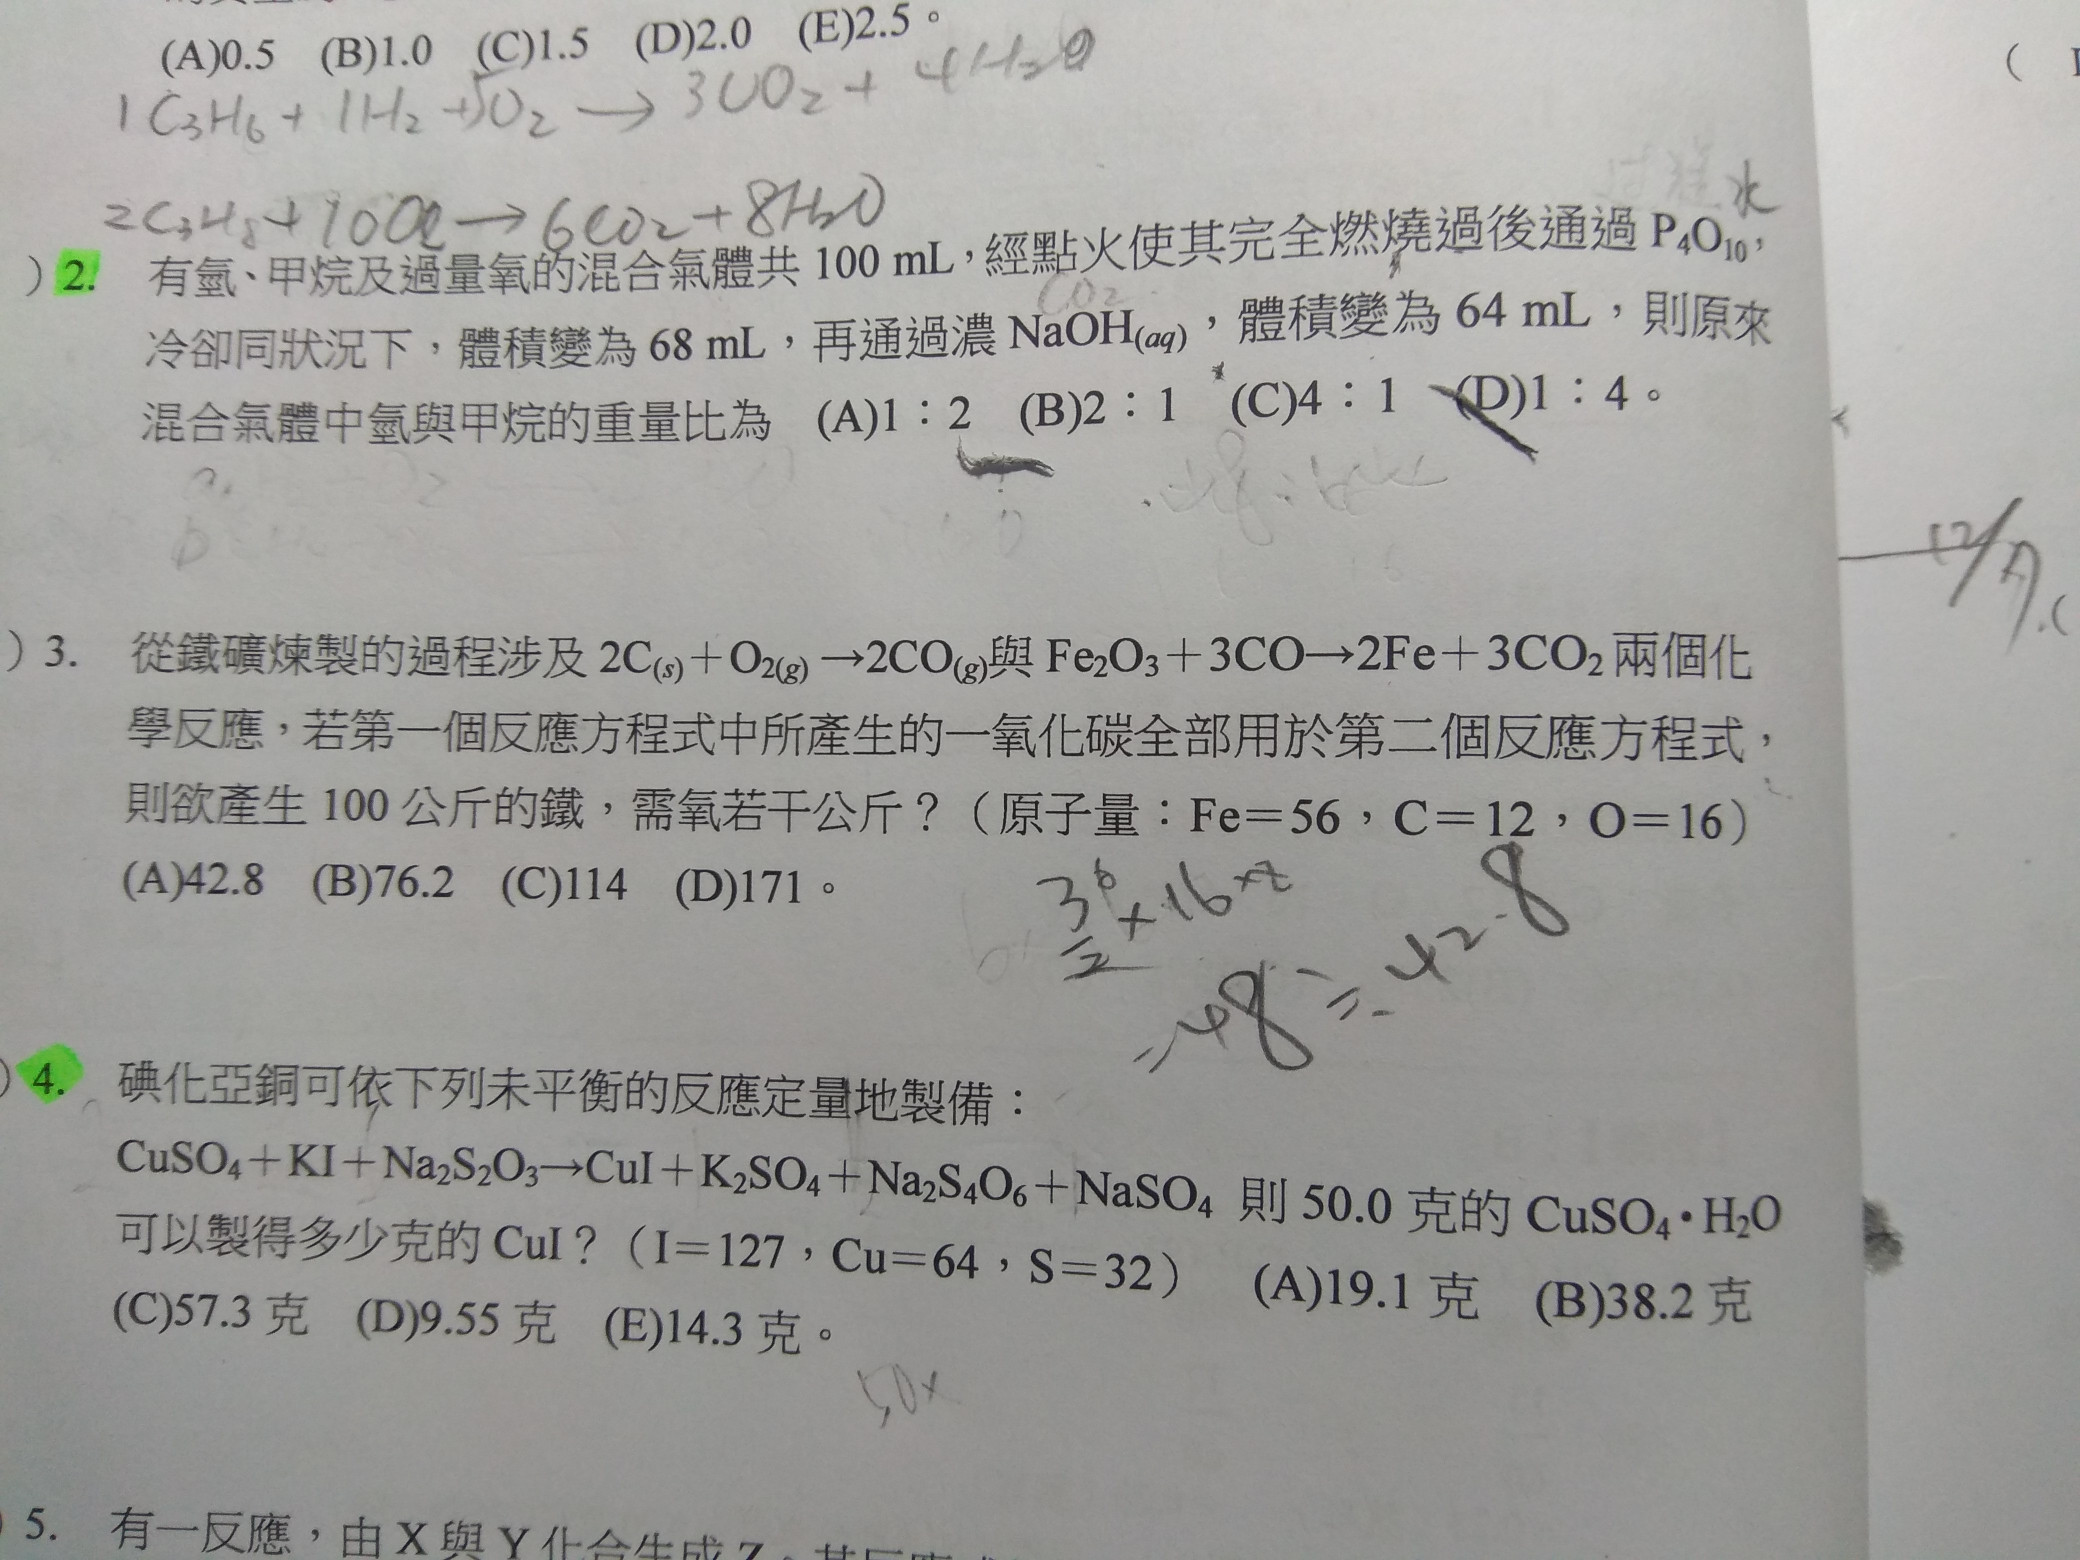 (A)0.5 (B)1.0 (C)1.5 (D)2.0 (E)2.5。
1C₃H₆+1H₂+5O₂→3CO₂+4H₂O
2C₃H₈+10O₂→6CO₂+8H₂O
水
)2. 有氫、甲烷及過量氧的混合氣體共 100 mL,經點火使其完全燃燒過後通過 P₄O₁₀,
CO₂
冷卻同狀況下,體積變為 68 mL,再通過濃 NaOH(aq),體積變為 64 mL,則原來
混合氣體中氫與甲烷的重量比為 (A)1:2 (B)2:1 (C)4:1 (D)1:4。
)3. 從鐵礦煉製的過程涉及 2C(s)+O₂(g)→2CO(g)與 Fe₂O₃+3CO→2Fe+3CO₂ 兩個化
學反應,若第一個反應方程式中所產生的一氧化碳全部用於第二個反應方程式,
則欲產生 100 公斤的鐵,需氧若干公斤?(原子量:Fe=56,C=12,O=16)
(A)42.8 (B)76.2 (C)114 (D)171。
=48=42.8
)4. 碘化亞銅可依下列未平衡的反應定量地製備:
CuSO₄+KI+Na₂S₂O₃→CuI+K₂SO₄+Na₂S₄O₆+NaSO₄ 則 50.0 克的 CuSO₄•H₂O
可以製得多少克的 CuI?(I=127,Cu=64,S=32) (A)19.1 克 (B)38.2 克
(C)57.3 克 (D)9.55 克 (E)14.3 克。
50x
5. 有一反應,由 X 與 Y 化合生成 Z。其反應